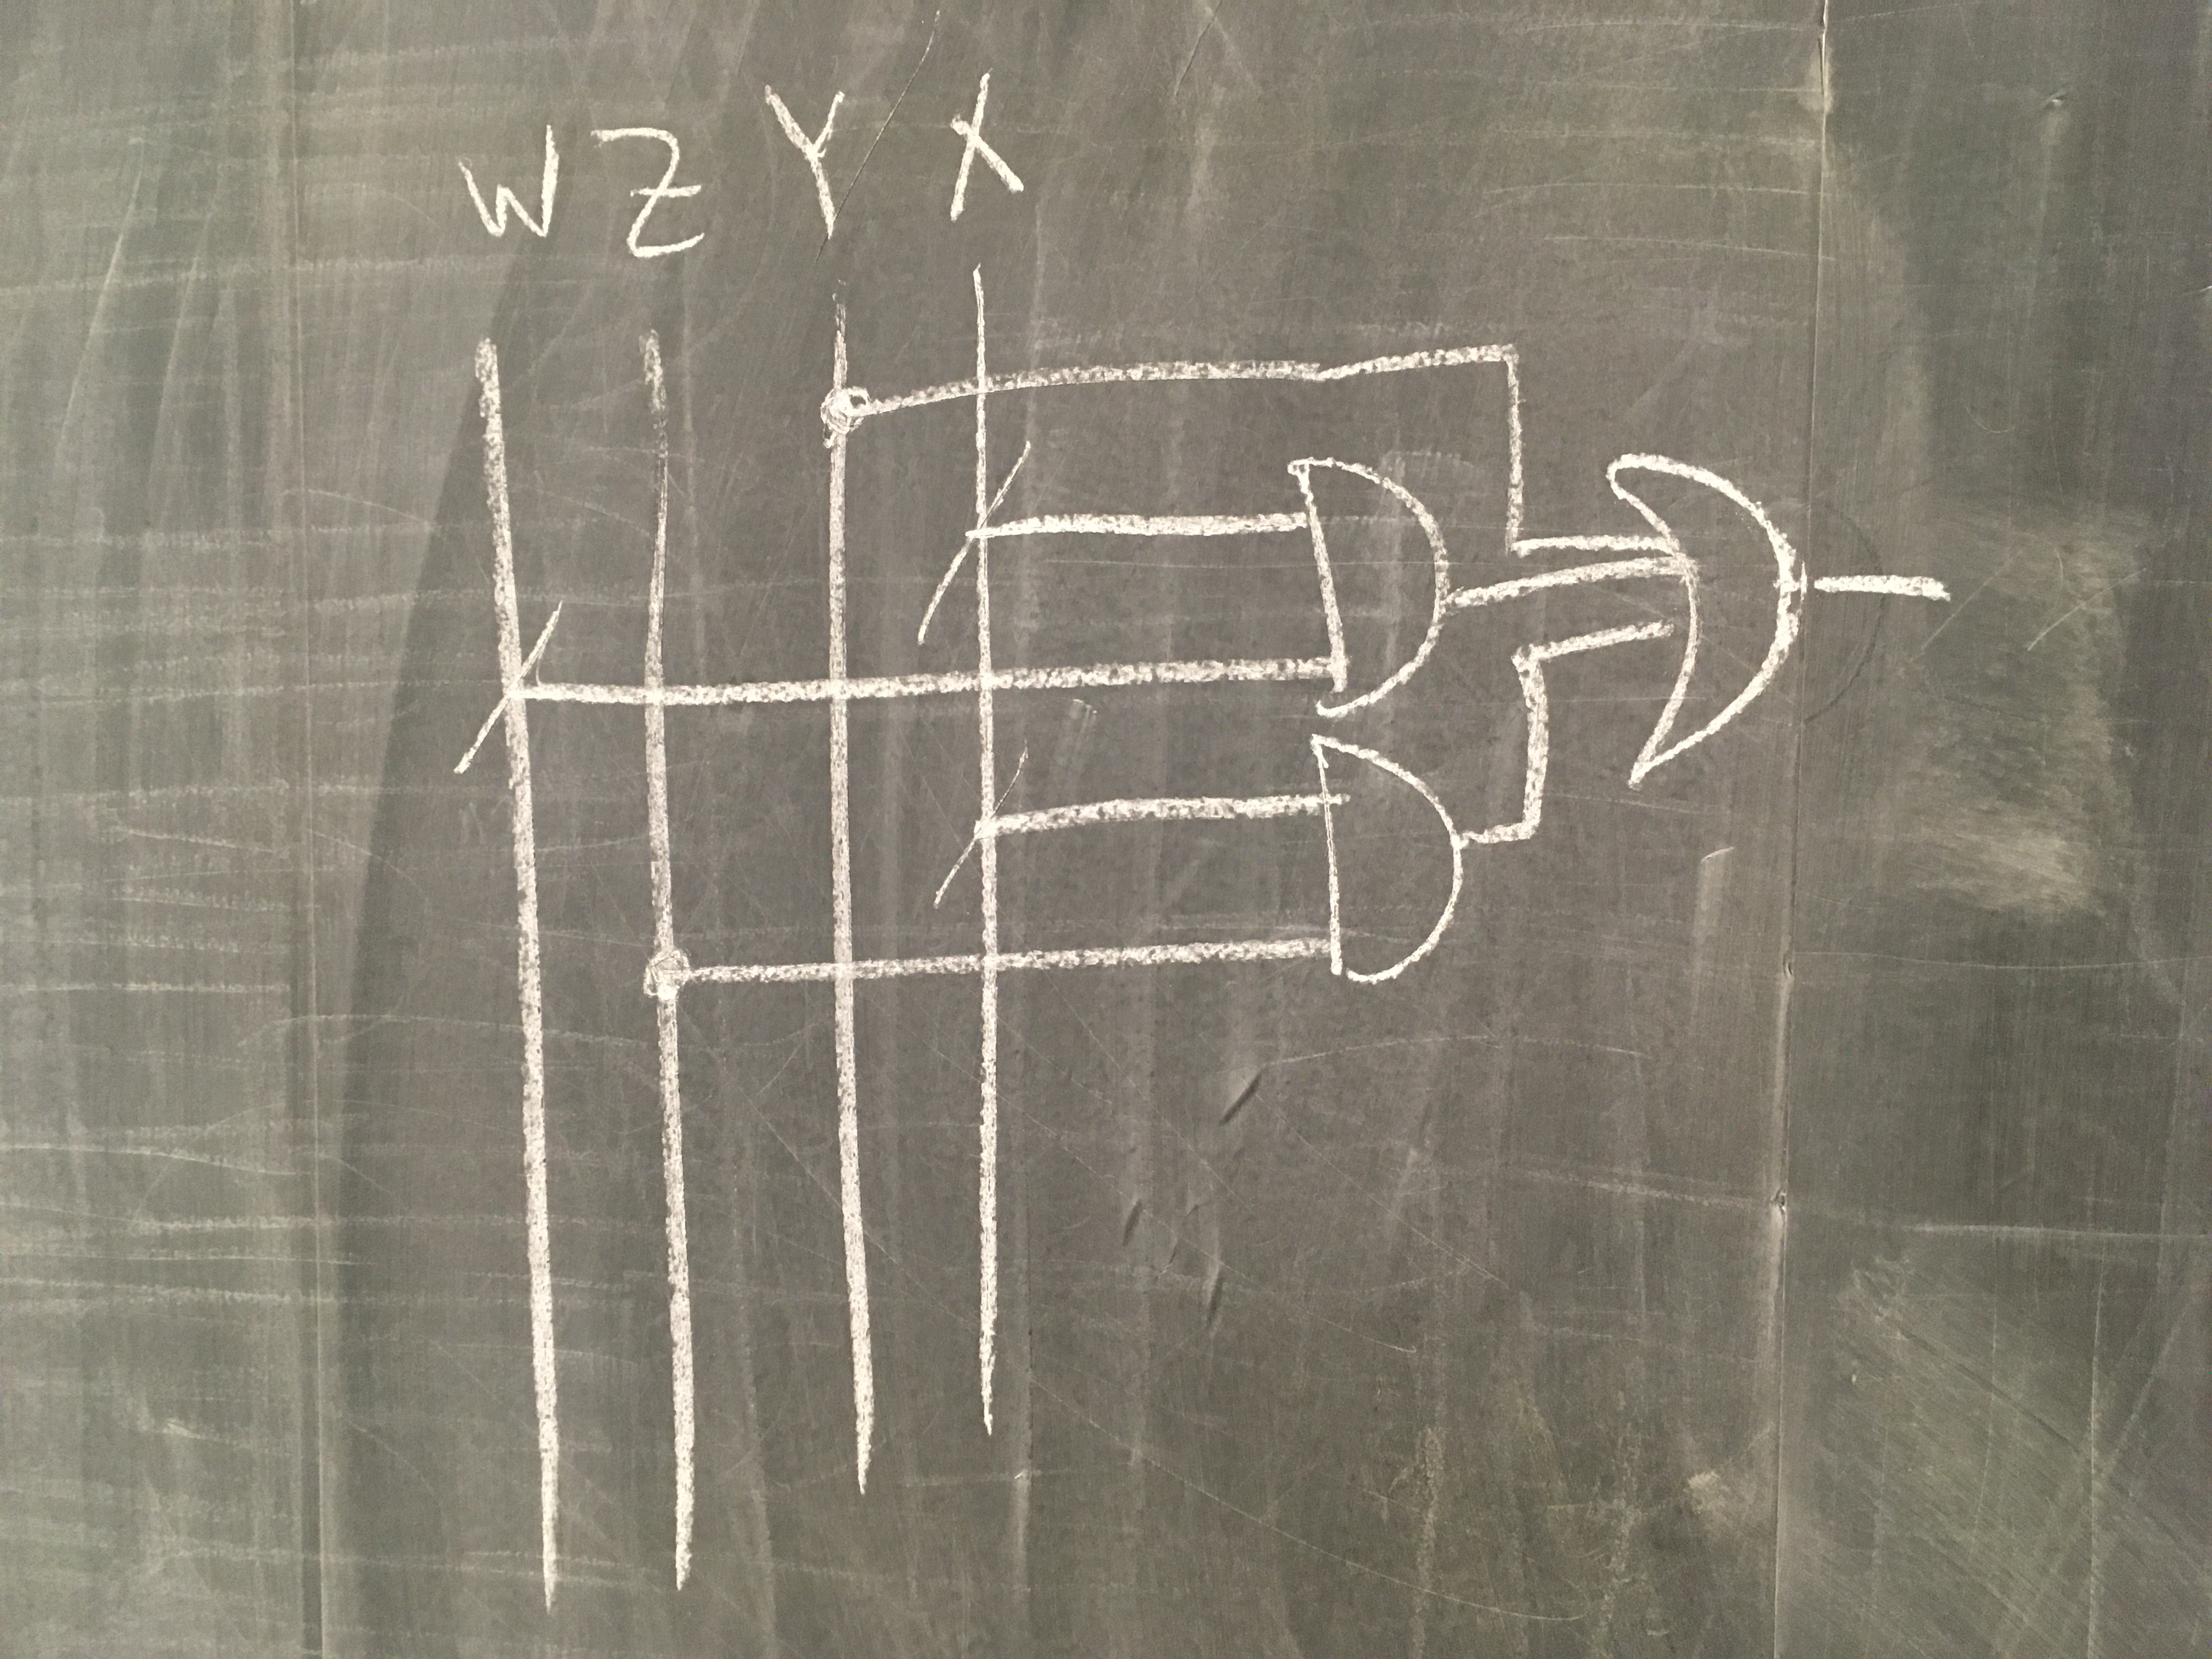 W Z Y X